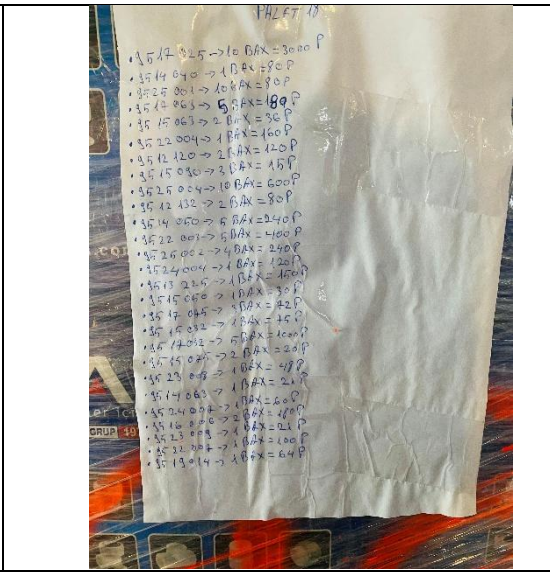 PALET 18
• 9517 025 → 10 BAX = 3000 P
• 9514 040 → 1 BAX = 80 P
• 9525 001 → 10 BAX = 80 P
• 9517 063 → 5 BAX = 180 P
• 9515 063 → 2 BAX = 36 P
• 9522 004 → 1 BAX = 160 P
• 9512 120 → 2 BAX = 120 P
• 9515 090 → 3 BAX = 15 P
• 9525 004 → 10 BAX = 600 P
• 9512 132 → 2 BAX = 80 P
• 9514 050 → 5 BAX = 240 P
• 9522 003 → 5 BAX = 400 P
• 9526 002 → 4 BAX = 240 P
• 9524 004 → 1 BAX = 120 P
• 9513 225 → 1 BAX = 150 P
• 9515 050 → 1 BAX = 30 P
• 9517 075 → BAX = 72 P
• 9515 032 → 1 BAX = 75 P
• 9517 032 → 5 BAX = 1000 P
• 9515 075 → 2 BAX = 20 P
• 9523 008 → 1 BAX = 48 P
• 9514 063 → 1 BAX = 20 P
• 9524 007 → 1 BAX = 60 P
• 9516 006 → 2 BAX = 180 P
• 9523 009 → 1 BAX = 21 P
• 9522 007 → 1 BAX = 100 P
• 9519 014 → 1 BAX = 64 P
GRUP 19